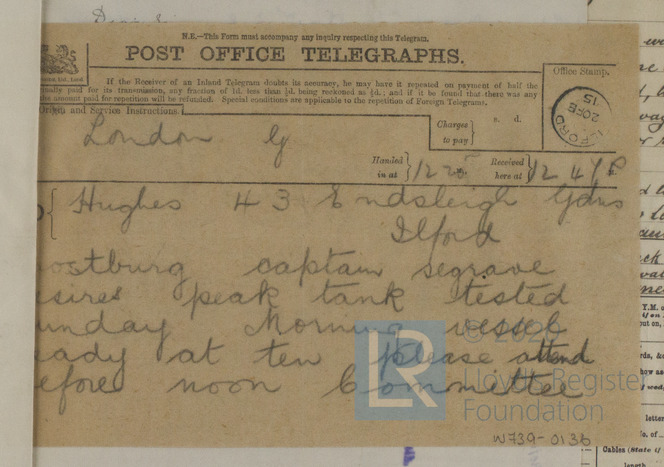 N.B.—This Form must accompany any inquiry respecting this Telegram.
POST OFFICE TELEGRAPHS.
If the Receiver of an Inland Telegram doubts its accuracy, he may have it repeated on payment of half the
paid for its transmission, any fraction of 1d. less than ½d. being reckoned as ½d.; and if it be found that there was any
amount paid for repetition will be refunded. Special conditions are applicable to the repetition of Foreign Telegrams.
Office Stamp.
ILFORD
20 FE
15
Origin and Service Instructions.
London G
Charges to pay
s. d.
Handed in at
Received here at
Hughes 43 Endsleigh Gdns
Ilford
captain segrave
peak tank tested
Morning vessel
at ten please attend
noon Committee
© 202
Lloyd's Register
Foundation
LR
W739-0136